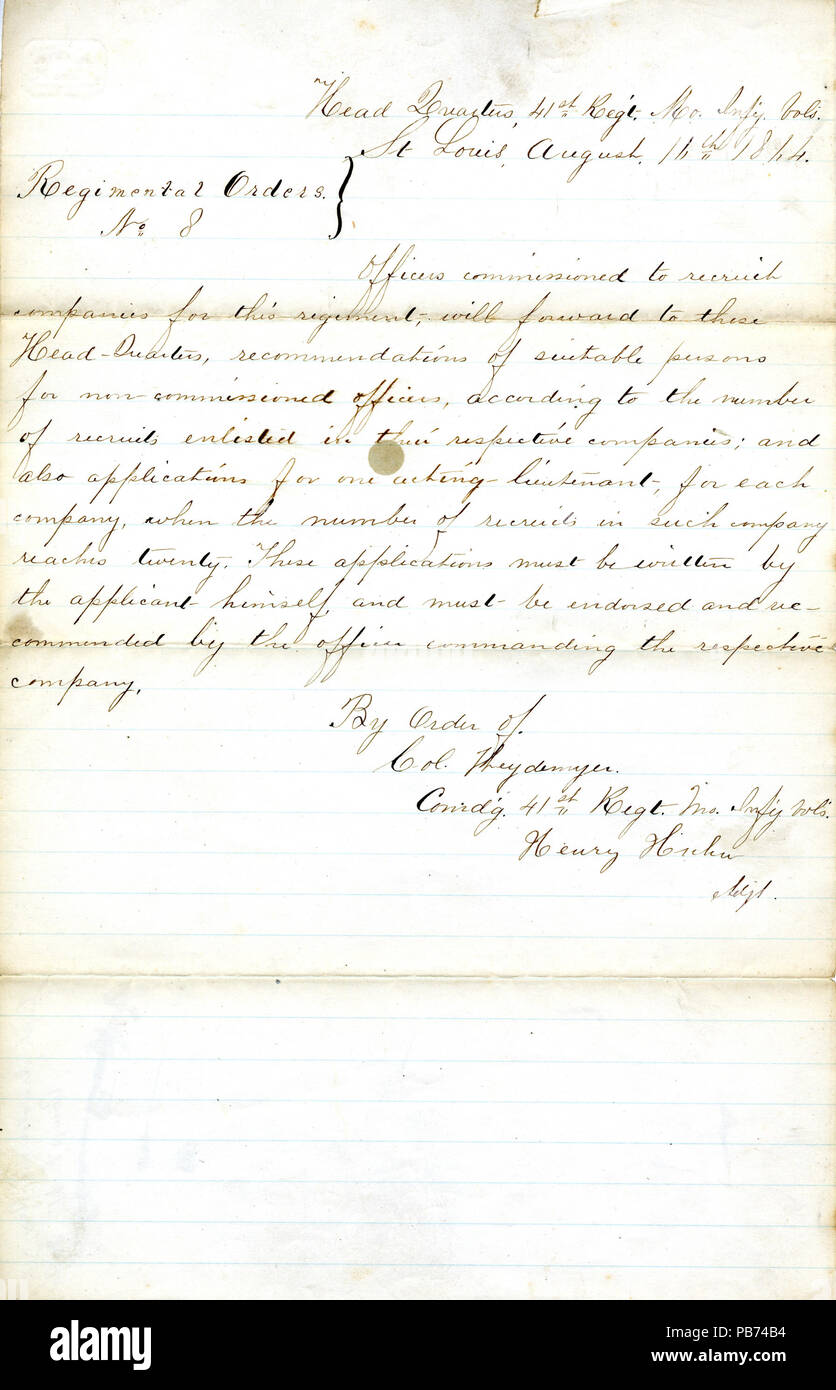 Head Quarters, 41st Regt. Mo. Infy. Vols.
St Louis, August, 16th 1864.
Regimental Orders.
No 8
Officers commissioned to recruit
companies for this regiment, will forward to these
Head-Quarters, recommendations of suitable persons
for non-commissioned officers, according to the number
of recruits enlisted in their respective companies; and
also applications for one acting lieutenant, for each
company, when the number of recruits in such company
reaches twenty. These applications must be written by
the applicant himself, and must be endorsed and re-
commended by the officer commanding the respective
company.
By Order of.
Col. Weydemyer.
Comd'g. 41st Regt. Mo. Infy Vols.
Henry
Adjt.
alamy
Image ID: PB74B4
www.alamy.com